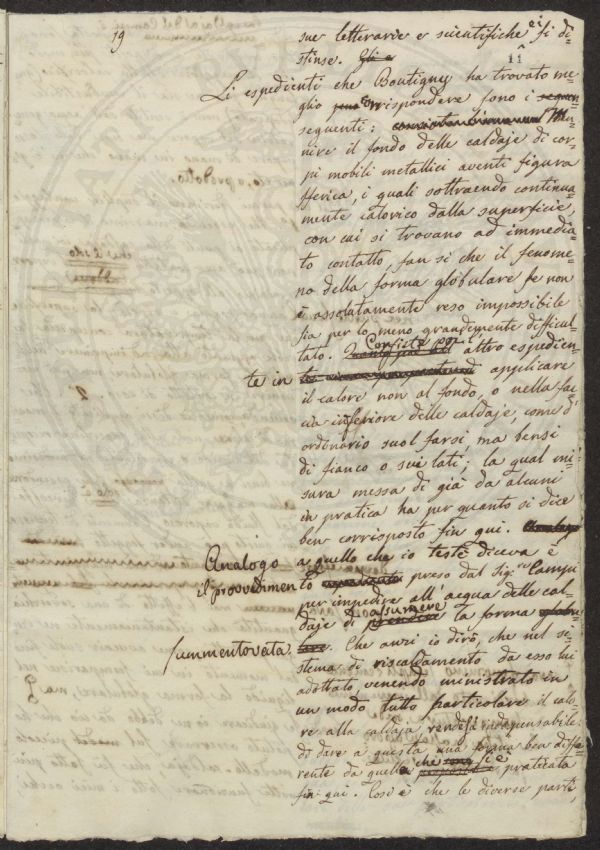 19
sue letterarie e scientifiche ei si di=
stinse. Gli e
ii
Li espedienti che Boutigny ha trovato me=
glio corrispondere sono i
seguenti: Mu=
nire il fondo delle caldaje di cor=
pi mobili metallici aventi figura
sferica, i quali sottraendo continua=
mente calorico dalla superficie,
con cui si trovano ad immedia=
to contatto, fan sì che il fenome=
no della forma globulare se non
è assolutamente reso impossibile
sia per lo meno grandemente difficul=
tato. Consiste poi l' altro espedien=
te in applicare
il calore non al fondo, o nella fac=
cia inferiore delle caldaje, come d'
ordinario suol farsi, ma bensì
di fianco o sui lati; la qual mi=
sura messa di già da alcuni
in pratica ha per quanto si dice
ben corrisposto fin qui.
Analogo a quello che io testè diceva è
il provvedimento preso dal Sig.re Campi
per impedire all' acqua delle cal=
daje di assumere la forma
summentovata. Che anzi io dirò, che nel si=
stema di riscaldamento da esso lui
adottato, venendo ministrato in
un modo tutto particolare il calo=
re alla caldaja, rendesi indispensabile
di dare a questa una forma ben diffe=
rente da quella che si è praticata
fin qui. Così è che le diverse parti,